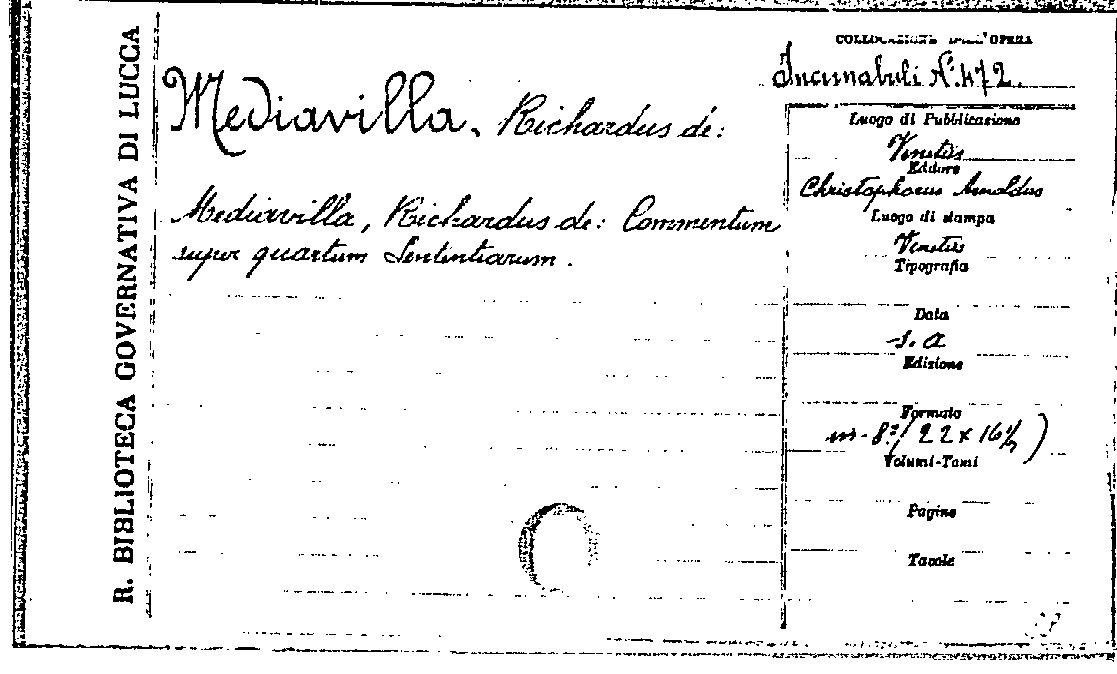 R. BIBLIOTECA GOVERNATIVA DI LUCCA
Mediavilla, Richardus de:
Mediavilla, Richardus de: Commentum
super quartum Sententiarum.
COLLOCAZIONE DELL'OPERA
Incunabuli N. 472.
Luogo di Pubblicazione
Venetiis
Editore
Christophorus Arnoldus
Luogo di stampa
Venetiis
Tipografia
Data
s. a
Edizione
Formato
in-8° (22 x 16½)
Volumi-Tomi
Pagine
Tavole